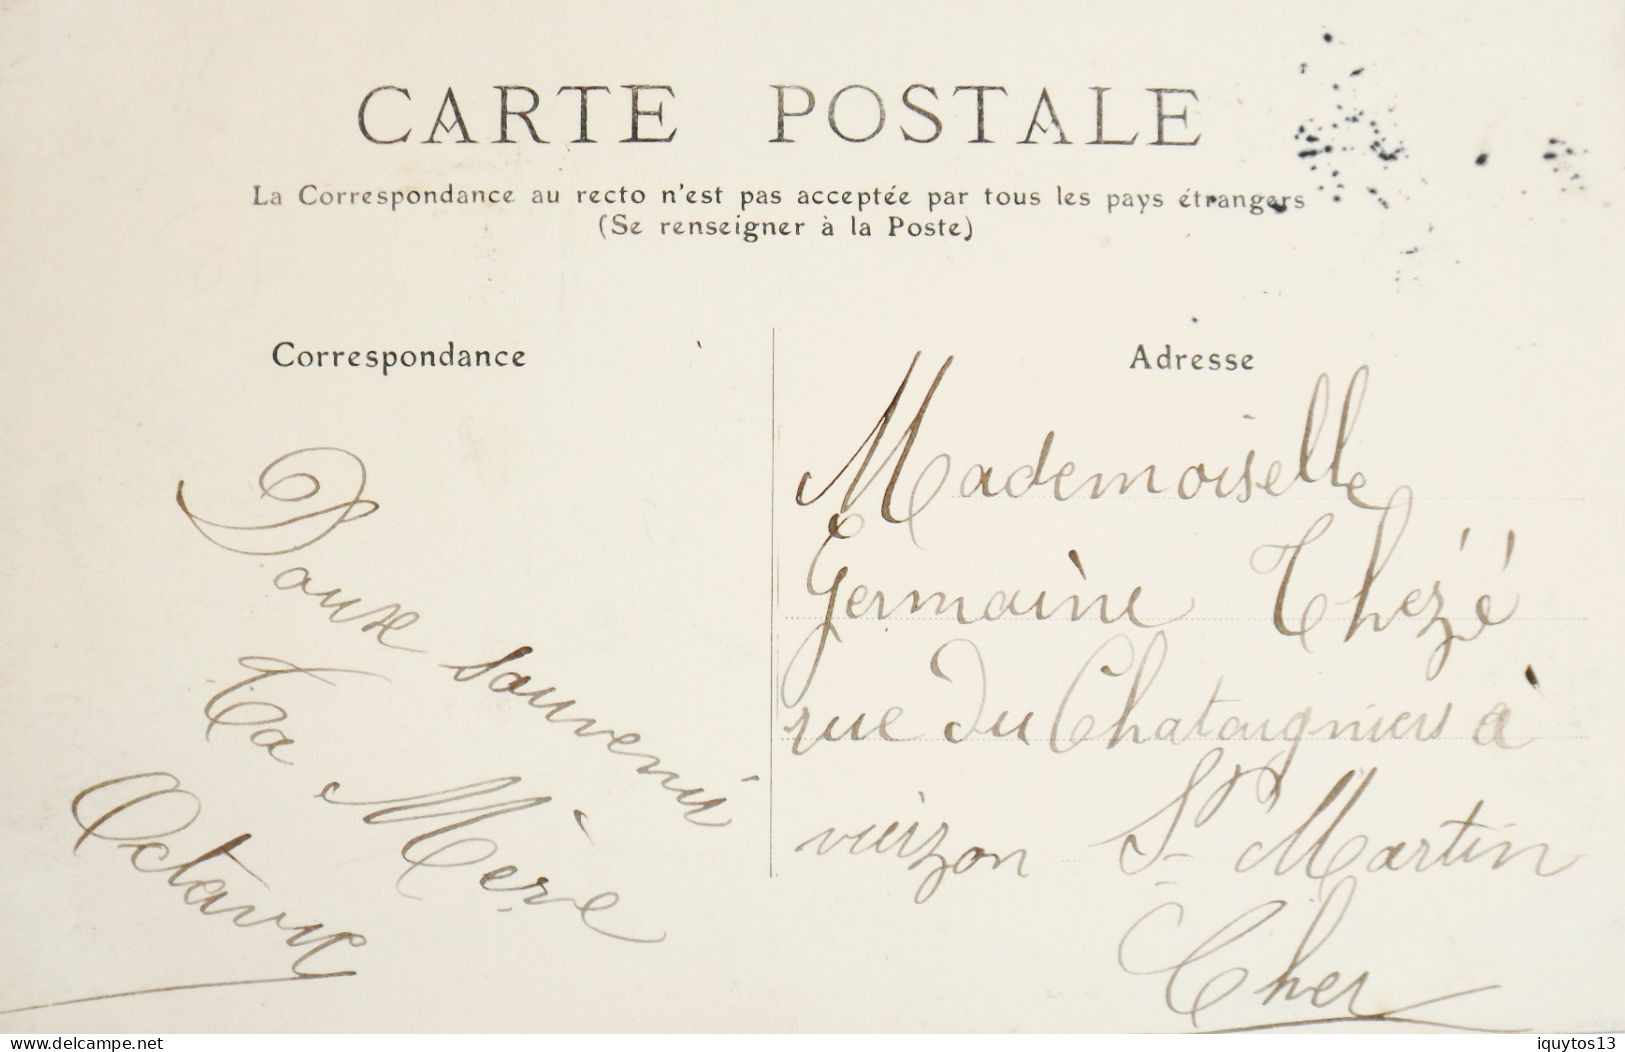 CARTE POSTALE
La Correspondance au recto n'est pas acceptée par tous les pays étrangers
(Se renseigner à la Poste)
Correspondance
Doux souvenir
Ta Mère
Octavie
Adresse
Mademoiselle
Germaine Thezé
rue du Chataigniers à
vierzon St Martin
Cher
delcampe.net
iquytos13